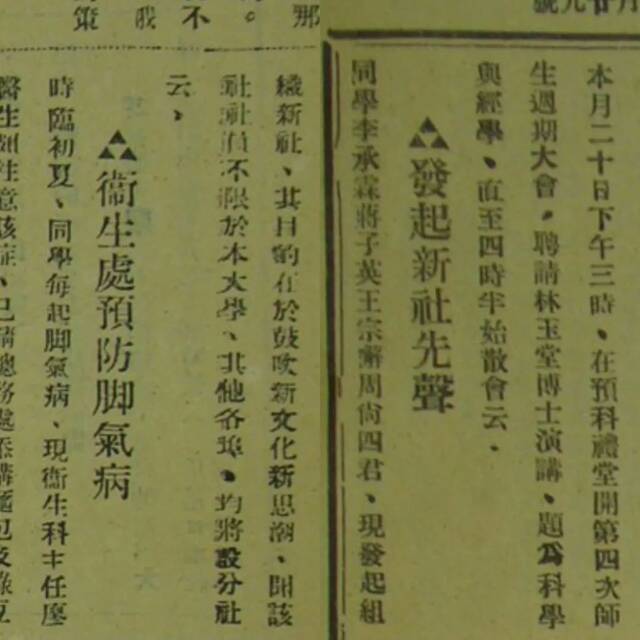 本月二十日下午三時、在預科禮堂開第四次師
生週期大會。聘請林玉堂博士演講、題爲科學
與經學、直至四時半始散會云。
發起新社先聲
同學李承霖蔣子英王宗儕周尙四君、現發起組
織新社、其目的在於鼓吹新文化新思潮、聞該
社社員不限於本大學、其他各埠、均將設分社
云、
衞生處預防脚氣病
時臨初夏、同學每起脚氣病、現衞生科主任廛